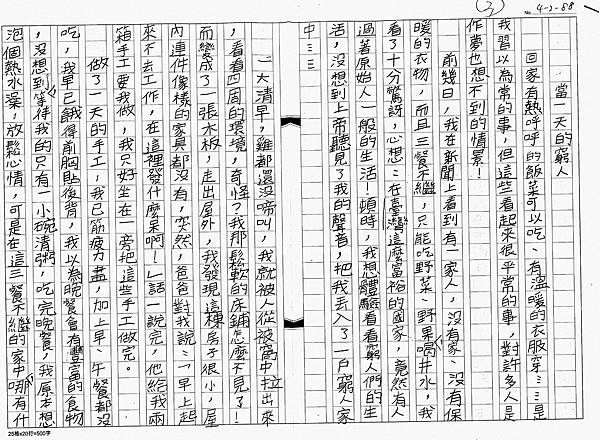 (3)
No. 4-2-88
當一天的窮人
回家有熱呼呼的飯菜可以吃、有溫暖的衣服穿……是
我習以為常的事，但這些看起來很平常的事，對許多人是
作夢也想不到的情景！
前幾日，我在新聞上看到有一家人，沒有家、沒有保
暖的衣物，而且三餐不繼，只能吃野菜、野果喝井水，我
看了十分驚訝，心想：在臺灣這麼富裕的國家，竟然有人
過著原始人一般的生活！頓時，我想體驗看看窮人們的生
活，沒想到上帝聽見了我的聲音，把我丟入了一戶窮人家
中……
一大清早，雞都還沒啼叫，我就被人從被窩中拉出來
，看看四周的環境，奇怪？我那鬆軟的床鋪怎麼不見了！
而變成了一張木板，走出屋外，我發現這棟房子很小，屋
內連件像樣的家具都沒有，突然，爸爸對我說：「早上起
來不去工作，在這裡發什麼呆啊！」話一說完，他給我兩
箱手工要我做，我只好坐在一旁把這些手工做完。
做了一天的手工，我已筋疲力盡，加上早、午餐都沒
吃，我早已餓得前胸貼後背，我以為晚餐會有豐富的食物
，沒想到等待我的只有一小碗清粥，吃完晚餐，我原本想
泡個熱水澡，放鬆心情，可是在這三餐不繼的家中哪有什
25格x20行=500字